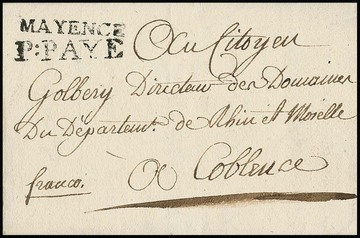 MAYENCE
P:PAYÉ
Au Citoyen
Golbery Directeur des Domaines
Du Départemt. de Rhin et Moselle
A Coblence
franco.